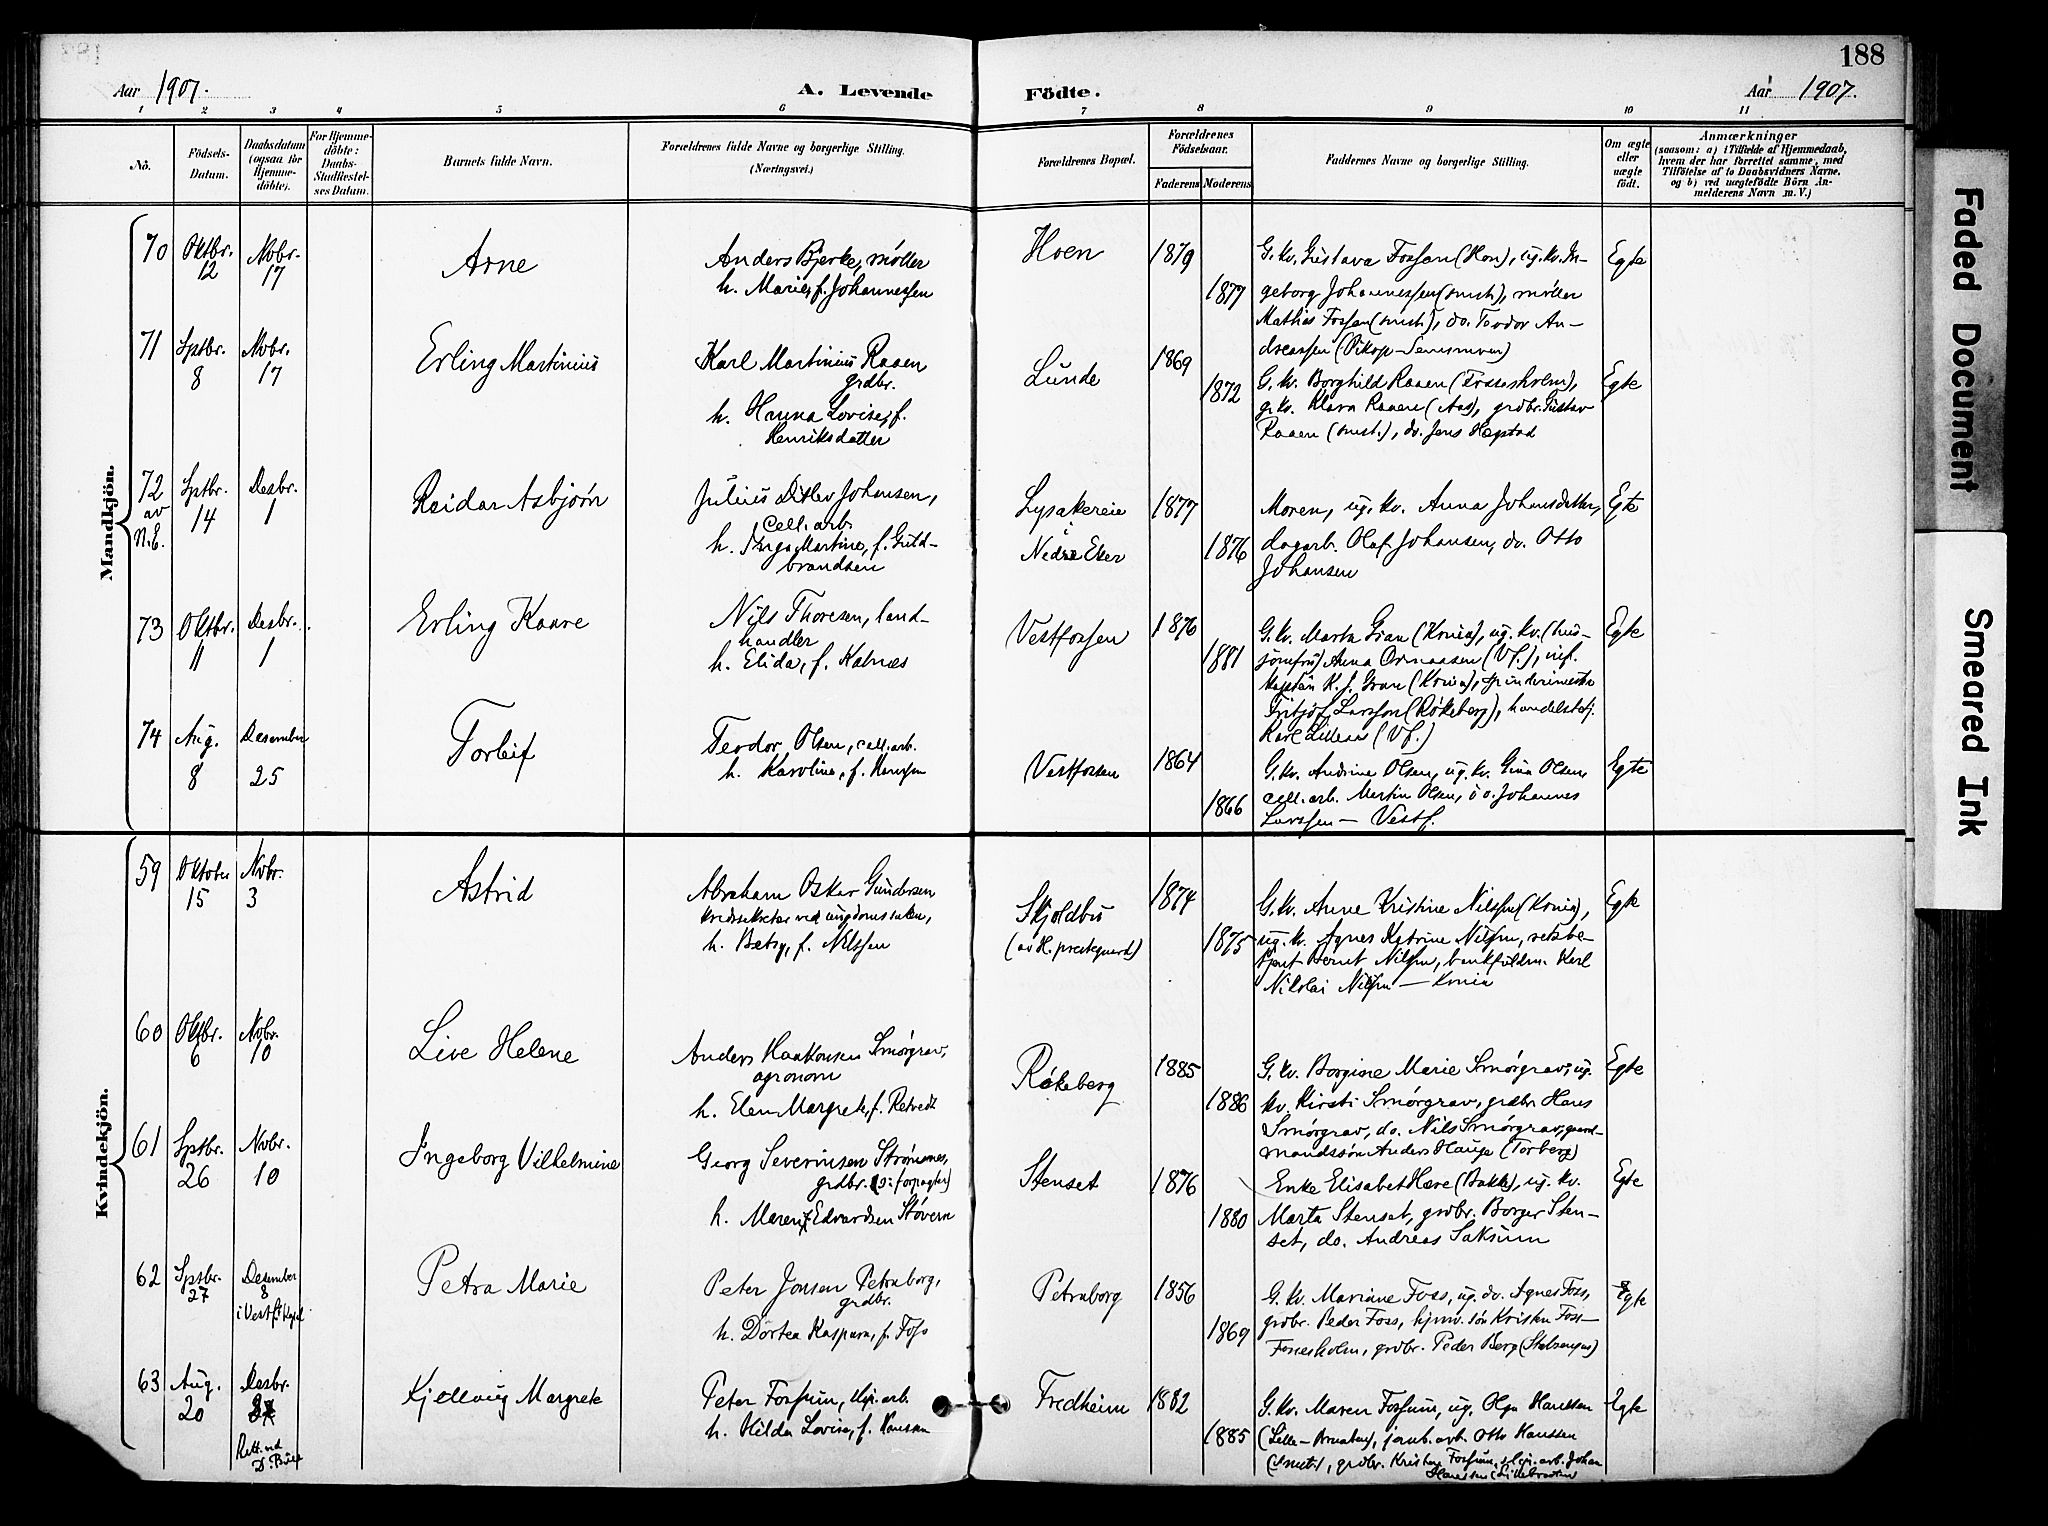 188
Aar 1907. A. Levende Födte. Aar 1907.
1 2 3 4 5 6 7 8 9 10 11
Nö.
Födsels-Datum.
Daabsdatum (ogsaa for Hjemme-döbte).
For Hjemme-döbte: Daabs-Stadfæstel-ses Datum.
Barnets fulde Navn.
Forældrenes fulde Navne og borgerlige Stilling.
(Næringsvei.)
Forældrenes Bopæl.
Forældrenes Födselsaar.
Faderens Moderens
Faddernes Navne og borgerlige Stilling.
Om ægte eller uægte födt.
Anmærkninger
(saasom: a) i Tilfælde af Hjemmedaab,
hvem der har forrettet samme, med
Tilföielse af to Daabsvidners Navne,
og b) ved uægtefödte Börn An-
melderens Navn m. V.)
Mandkjön.
70 Oktbr. 12 Nvbr. 17 Arne
Anders Bjerke, møller
h. Marie, f. Johannessen
Hoen 1879 1877
G. kv. Gustava Fossen (Hoen), ug. kv. In-
geborg Johannessen (smst.), møller
Mathias Fossen (smst.), do. Teodor An-
dreassen
Egte
71 Sptbr. 8 Nvbr. 17 Erling Martinius
Karl Martinius Raaen
grdbr.
h. Hanna Lovise, f.
Henriksdatter
Lunde 1869 1872
G. kv. Borghild Raaen (Fossesholm),
g. kv. Klara Raaen (Aas), grdbr. Gustav
Raaen (smst.), do. Jens Hægstad
Egte
72 av N.E. Sptbr. 14 Desbr. 1 Reidar Asbjørn
Julius Ditlev Johansen,
cell. arb.
h. Inga Martine, f. Guld-
brandsen
Lysakereie i Nedre Eker 1877 1876
Moren, ug. kv. Anna Johansdatter,
dagarb. Olaf Johansen, do. Otto
Johansen
Egte
73 Oktbr. 11 Desbr. 1 Erling Kaare
Nils Thoresen, land-
handler
h. Elida, f. Kalnæs
Vestfossen 1876 1881
G. kv. Marta Gran (Kr.nia), ug. kv. (hus-
jomfru) Anna Ormaasen (Vf.), inf.
kaptein K. J. Gran (Kr.nia), spinderimester
Fritjof Larssen (Røkeberg), handelsbetj.
Karl Lilleaas (Vf.)
Egte
74 Aug. 8 Desember 25 Torleif
Teodor Olsen, cell. arb.
h. Karoline, f. Hanssen
Vestfossen 1864 1866
G. kv. Andrine Olsen, ug. kv. Gina Olsen,
cell. arb. Martin Olsen, do. Johannes
Larssen — Vestf.
Egte
Kvindekjön.
59 Oktober 15 Nvbr. 3 Astrid
Abraham Oskar Gundersen
kredssekretær ved ungdomssaken,
h. Betsy, f. Nilssen
Skjoldbu
(av H. prestegaard) 1874 1875
G. kv. Anne Kristine Nilssen (Kr.nia),
ug. kv. Agnes Katrine Nilssen,
Bernt Nilssen, bankfuldm. Karl
Nikolai Nilssen — Kr.nia
Egte
60 Oktbr. 6 Nvbr. 10 Live Helene
Anders Haakonsen Smørgrav,
agronom
h. Elen Margrete, f. Retvedt
Røkeberg 1885 1886
G. kv. Borgine Marie Smørgrav, ug.
kv. Kirsti Smørgrav, grdbr. Hans
Smørgrav, do. Nils Smørgrav, gaard-
mandssøn Anders Hauga (Torberg)
Egte
61 Sptbr. 26 Nvbr. 10 Ingeborg Vilhelmine
Georg Severinsen Strømnes,
grdbr. (ɔ: forpagter)
h. Maren, f. Edvardsen Støvern
Stenset 1876 1880
Enke Elisabet Hære (Bakke), ug. kv.
Marta Stenset, grdbr. Borger Sten-
set, do. Andreas Saksum
Egte
62 Sptbr. 27 Desember 8 i Vestf. Kapel Petra Marie
Peter Jonsen Petraborg,
grdbr.
h. Dortea Kaspara, f. Foss
Petraborg 1856 1869
G. kv. Mariane Foss, ug. do. Agnes Foss,
grdbr. Peder Foss, hjmv. søn Kristen Foss —
Fossesholm, grdbr. Peder Berg
Egte
63 Aug. 20 Desbr. Kjellaug Margrete
Rett. ved
Peter Forssum, slip. arb.
h. Hilda Lovise, f. Hanssen
Fredheim 1882 1885
G. kv. Maren Forssum, ug. Olga Hanssen
jernb. arb. Otto Hanssen
(smst.), grdbr. Kristen Forssum, slip. arb. Johan
Hanssen
Egte
Faded Document
Smeared Ink